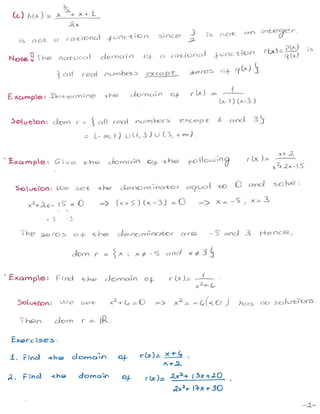 (c) h(x) = (x^(3/2) + x + 1) / 2x
is not a rational function since 3/2 is not an integer.
Note: The natural domain of a rational function r(x) = p(x)/q(x) is
{all real numbers except zeros of q(x)}
Example: Determine the domain of r(x) = 1/((x-1)(x-3))
Solution: dom r = {all real numbers except 1 and 3}
= (-∞, 1) ∪ (1, 3) ∪ (3, +∞).
Example: Give the domain of the following r(x) = (x+2)/(x²+2x-15)
Solution: We set the denominator equal to 0 and solve:
x²+2x-15 = 0 => (x+5)(x-3) = 0 => x = -5, x = 3
+5 -3
The zeros of the denominator are -5 and 3. Hence,
dom r = {x : x ≠ -5 and x ≠ 3}
Example: Find the domain of r(x) = 1/(x²+4)
Solution: We set x²+4 = 0 => x² = -4 (<0) has no solutions.
Then dom r = ℝ.
Exercises:
1. Find the domain of r(x) = (x+4)/(x+2).
2. Find the domain of r(x) = (2x²+13x+20)/(2x²+17x+30)
-2-